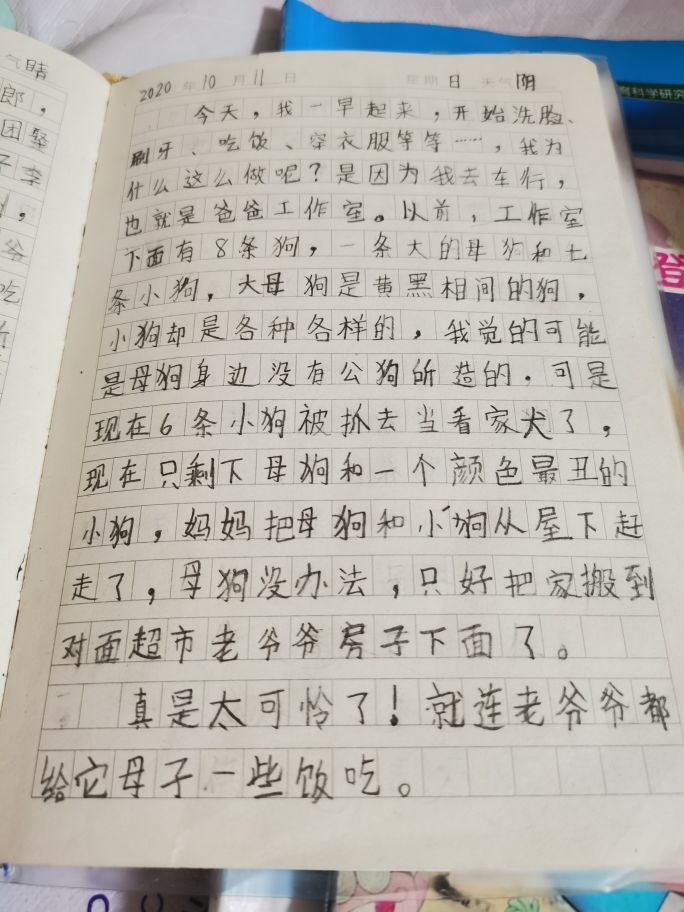 气晴
郎，
团聚
子李
，
爷
吃
2020年10月11日 星期日 天气阴
今天，我一早起来，开始洗脸、
刷牙、吃饭、穿衣服等等……，我为
什么这么做呢？是因为我去车行，
也就是爸爸工作室。以前，工作室
下面有8条狗，一条大的母狗和七
条小狗，大母狗是黄黑相间的狗，
小狗却是各种各样的，我觉的可能
是母狗身边没有公狗所造的．可是
现在6条小狗被抓去当看家犬了，
现在只剩下母狗和一个颜色最丑的
小狗，妈妈把母狗和小狗从屋下赶
走了，母狗没办法，只好把家搬到
对面超市老爷爷房子下面了。
真是太可怜了！就连老爷爷都
给它母子一些饭吃。
育科学研究
登